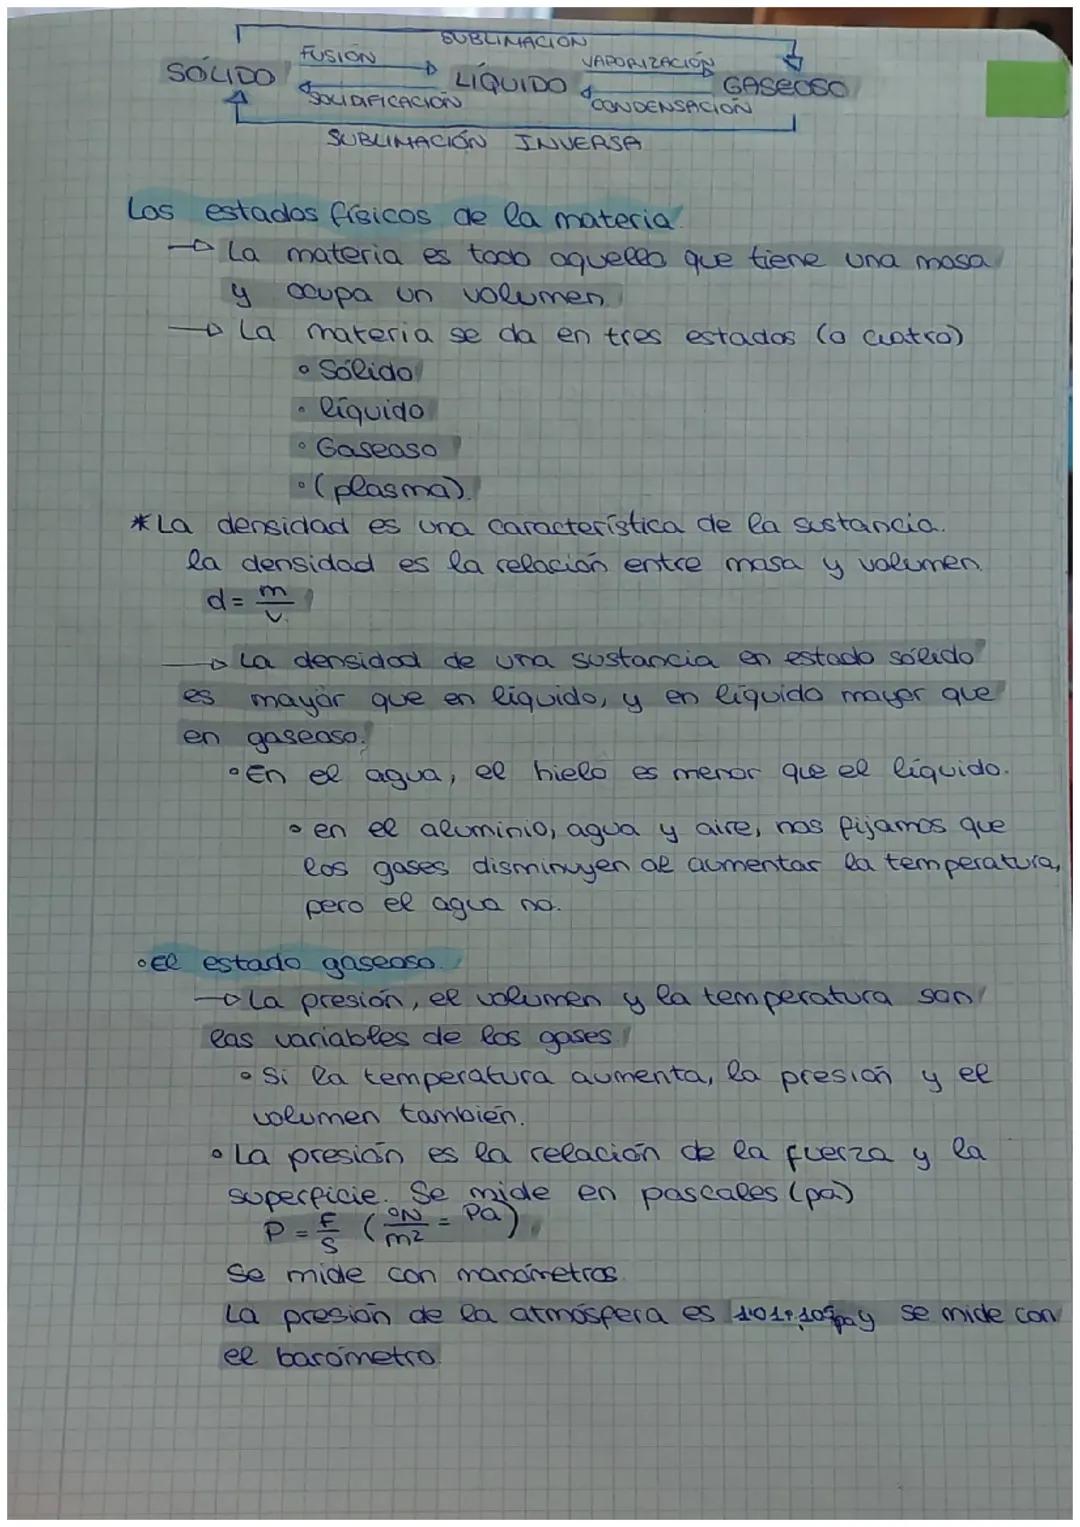 SUBLIMACIÓN
FUSIÓN
VAPORIZACIÓN
SÓLIDO
LÍQUIDO
GASEOSO
SOLIDIFICACIÓN
CONDENSACIÓN
SUBLIMACIÓN INVERSA
Los estados físicos de la materia.
→ La materia es todo aquello que tiene una masa
y ocupa un volumen
→ La materia se da en tres estados (o cuatro)
• Sólido
• líquido
• Gaseoso
• (plasma).
* La densidad es una característica de la sustancia.
la densidad es la relación entre masa y volumen.
d = m/v
→ La densidad de una sustancia en estado sólido
es mayor que en líquido, y en líquido mayor que
en gaseoso.
• En el agua, el hielo es menor que el líquido.
• en el aluminio, agua y aire, nos fijamos que
los gases disminuyen al aumentar la temperatura,
pero el agua no.
• el estado gaseoso.
→ La presión, el volumen y la temperatura son
las variables de los gases
• Si la temperatura aumenta, la presión y el
volumen también.
• La presión es la relación de la fuerza y la
superficie. Se mide en pascales (pa)
P = F/S (N/m² = Pa)
Se mide con manómetros.
La presión de la atmósfera es y se mide con
el barómetro.